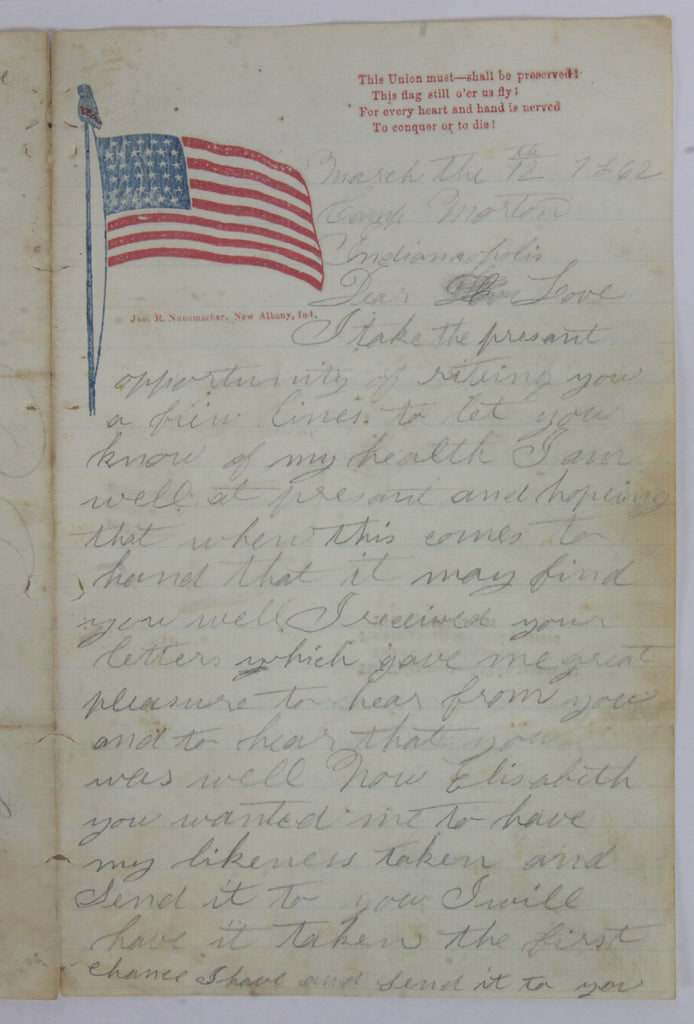 This Union must—shall be preserved!
This flag still o'er us fly!
For every heart and hand is nerved
To conquer or to die!
March the 12th 1862
Camp Morton
Indianaopolis
Dear Love
Jno. R. Nunemacher, New Albany, Ind.
I take the presant
opportunity of riteing you
a fiew lines to let you
know of my health I am
well at presant and hopeing
that when this comes to
hand that it may find
you well I received your
letters which gave me great
pleasure to hear from you
and to hear that you
was well Now Elisabeth
you wanted me to have
my likeness taken and
Send it to you I will
have it taken the first
chance I have and send it to you